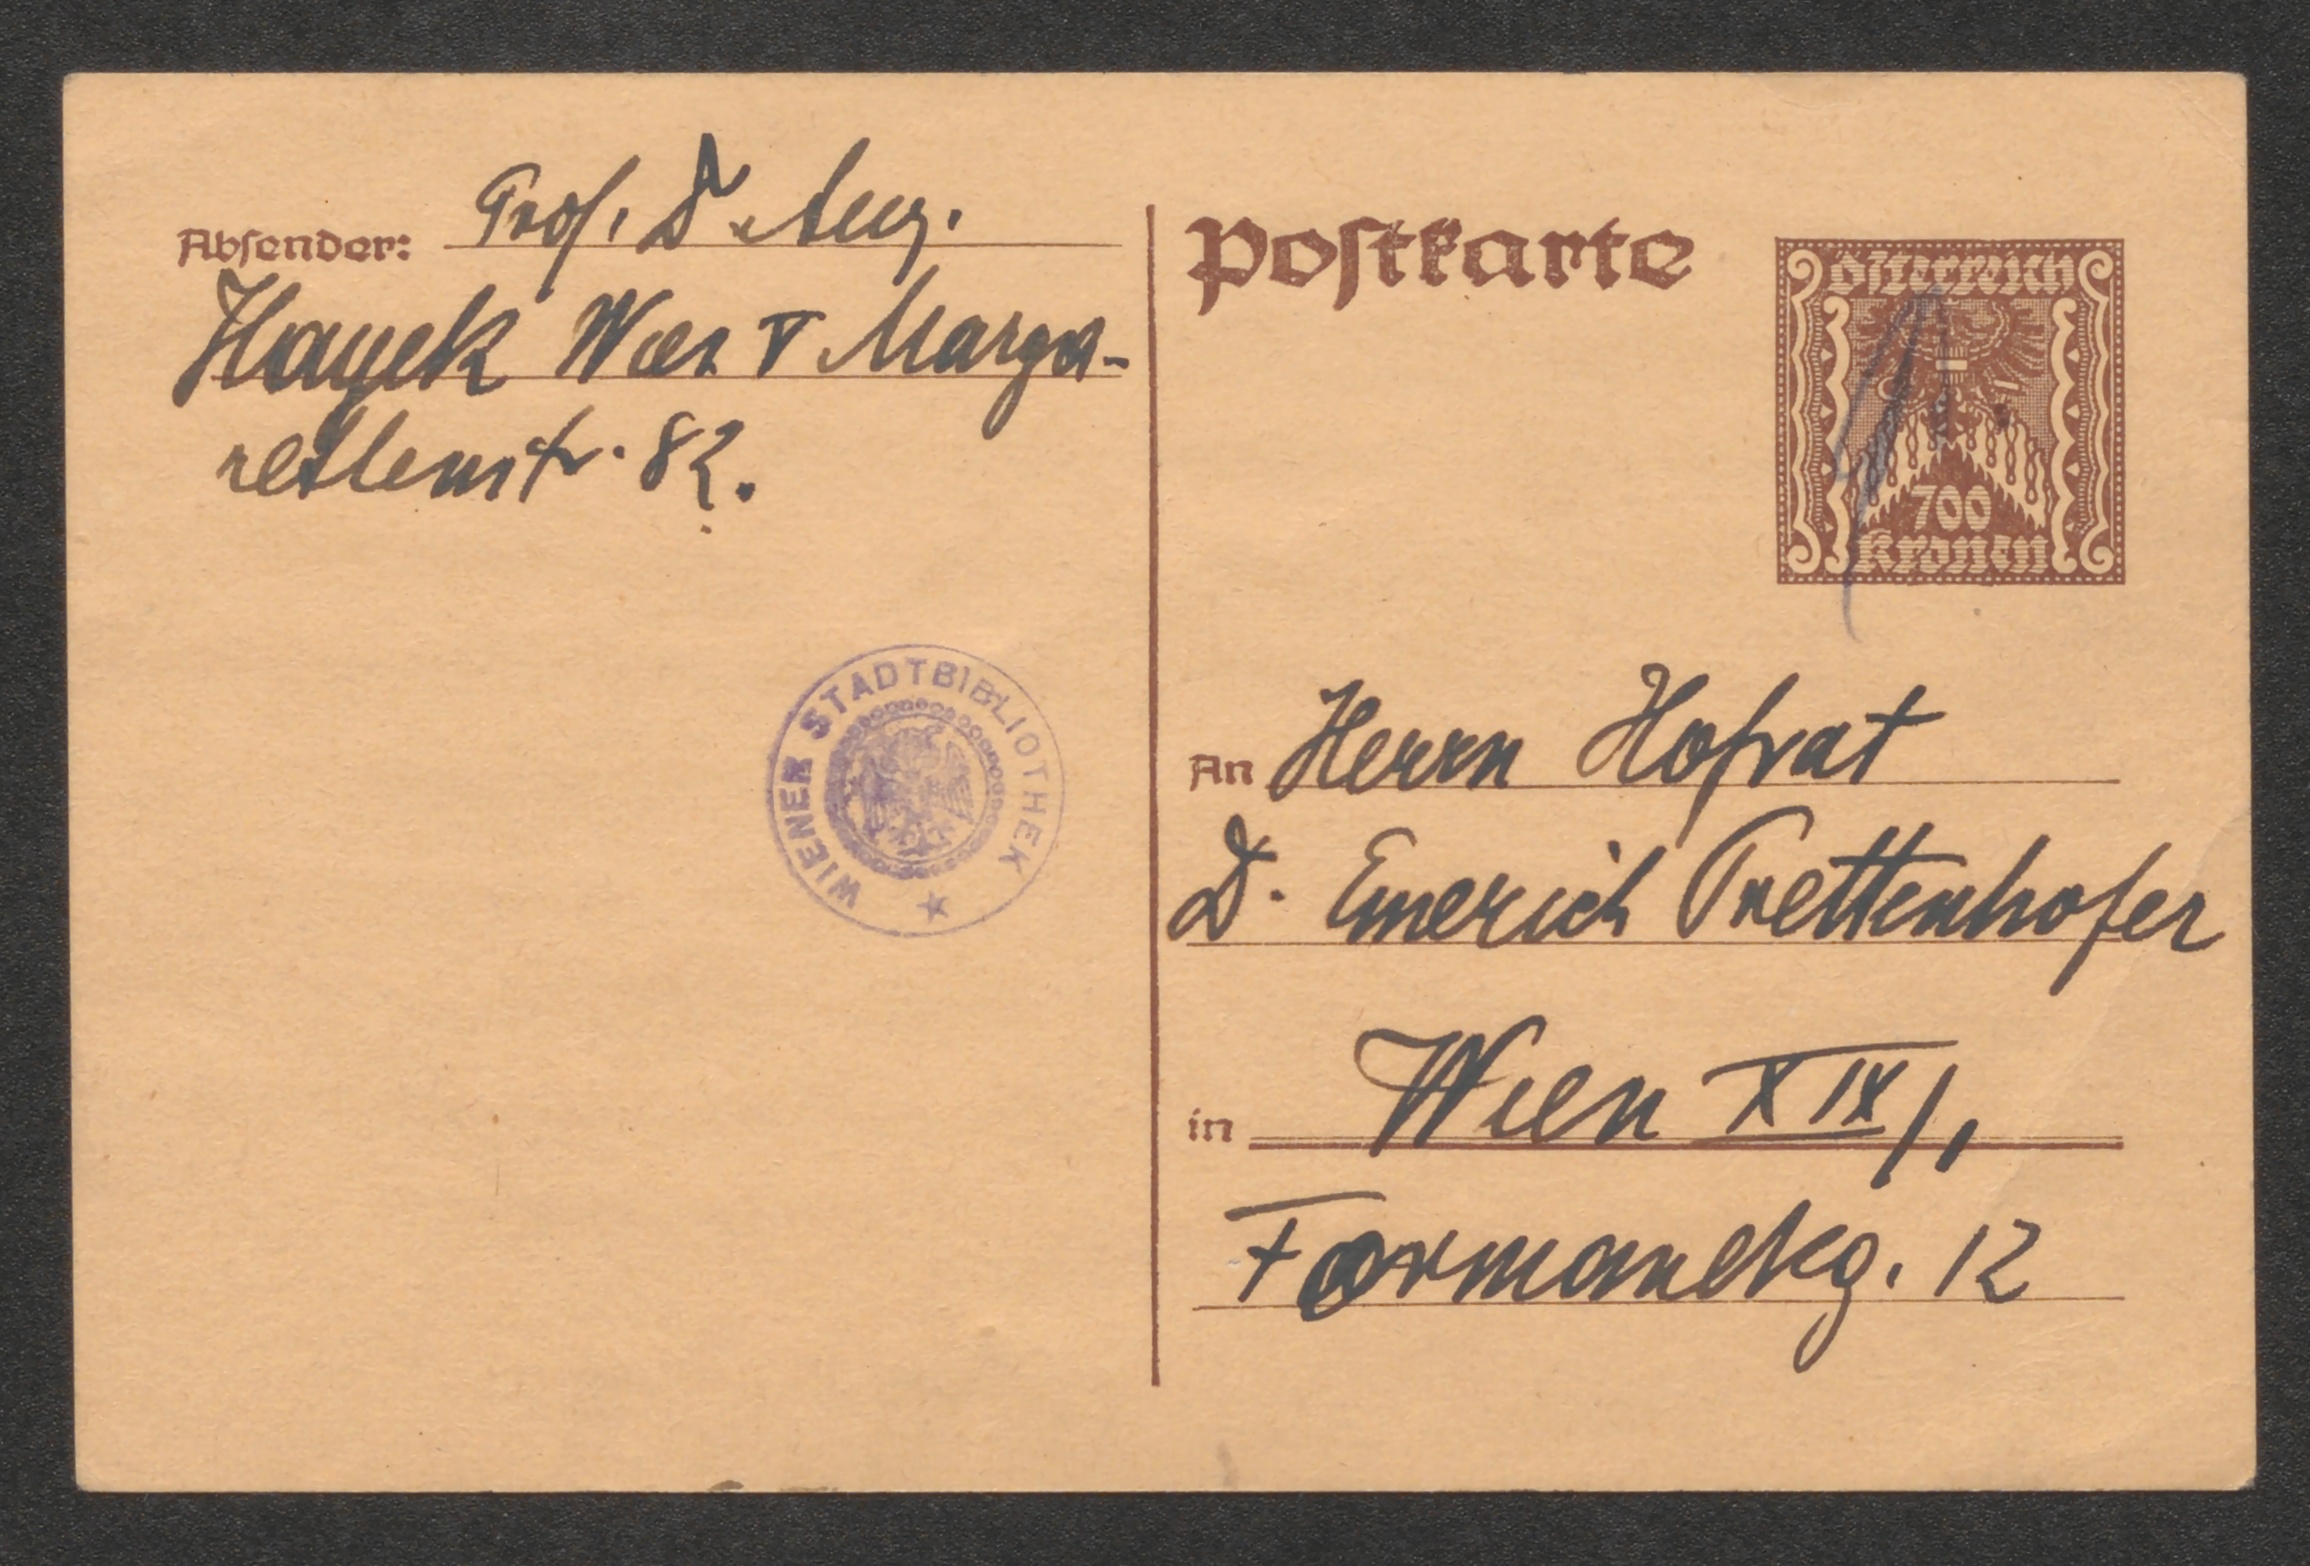 Absender: Prof. Dr. Aug.
Hayek Wien V Marga-
retenstr. 82.
WIENER STADTBIBLIOTHEK
Postkarte
Österreich
700
Kronen
An Herrn Hofrat
D. Emerich Prettenhofer
in Wien XIX/1
Formanekg. 12